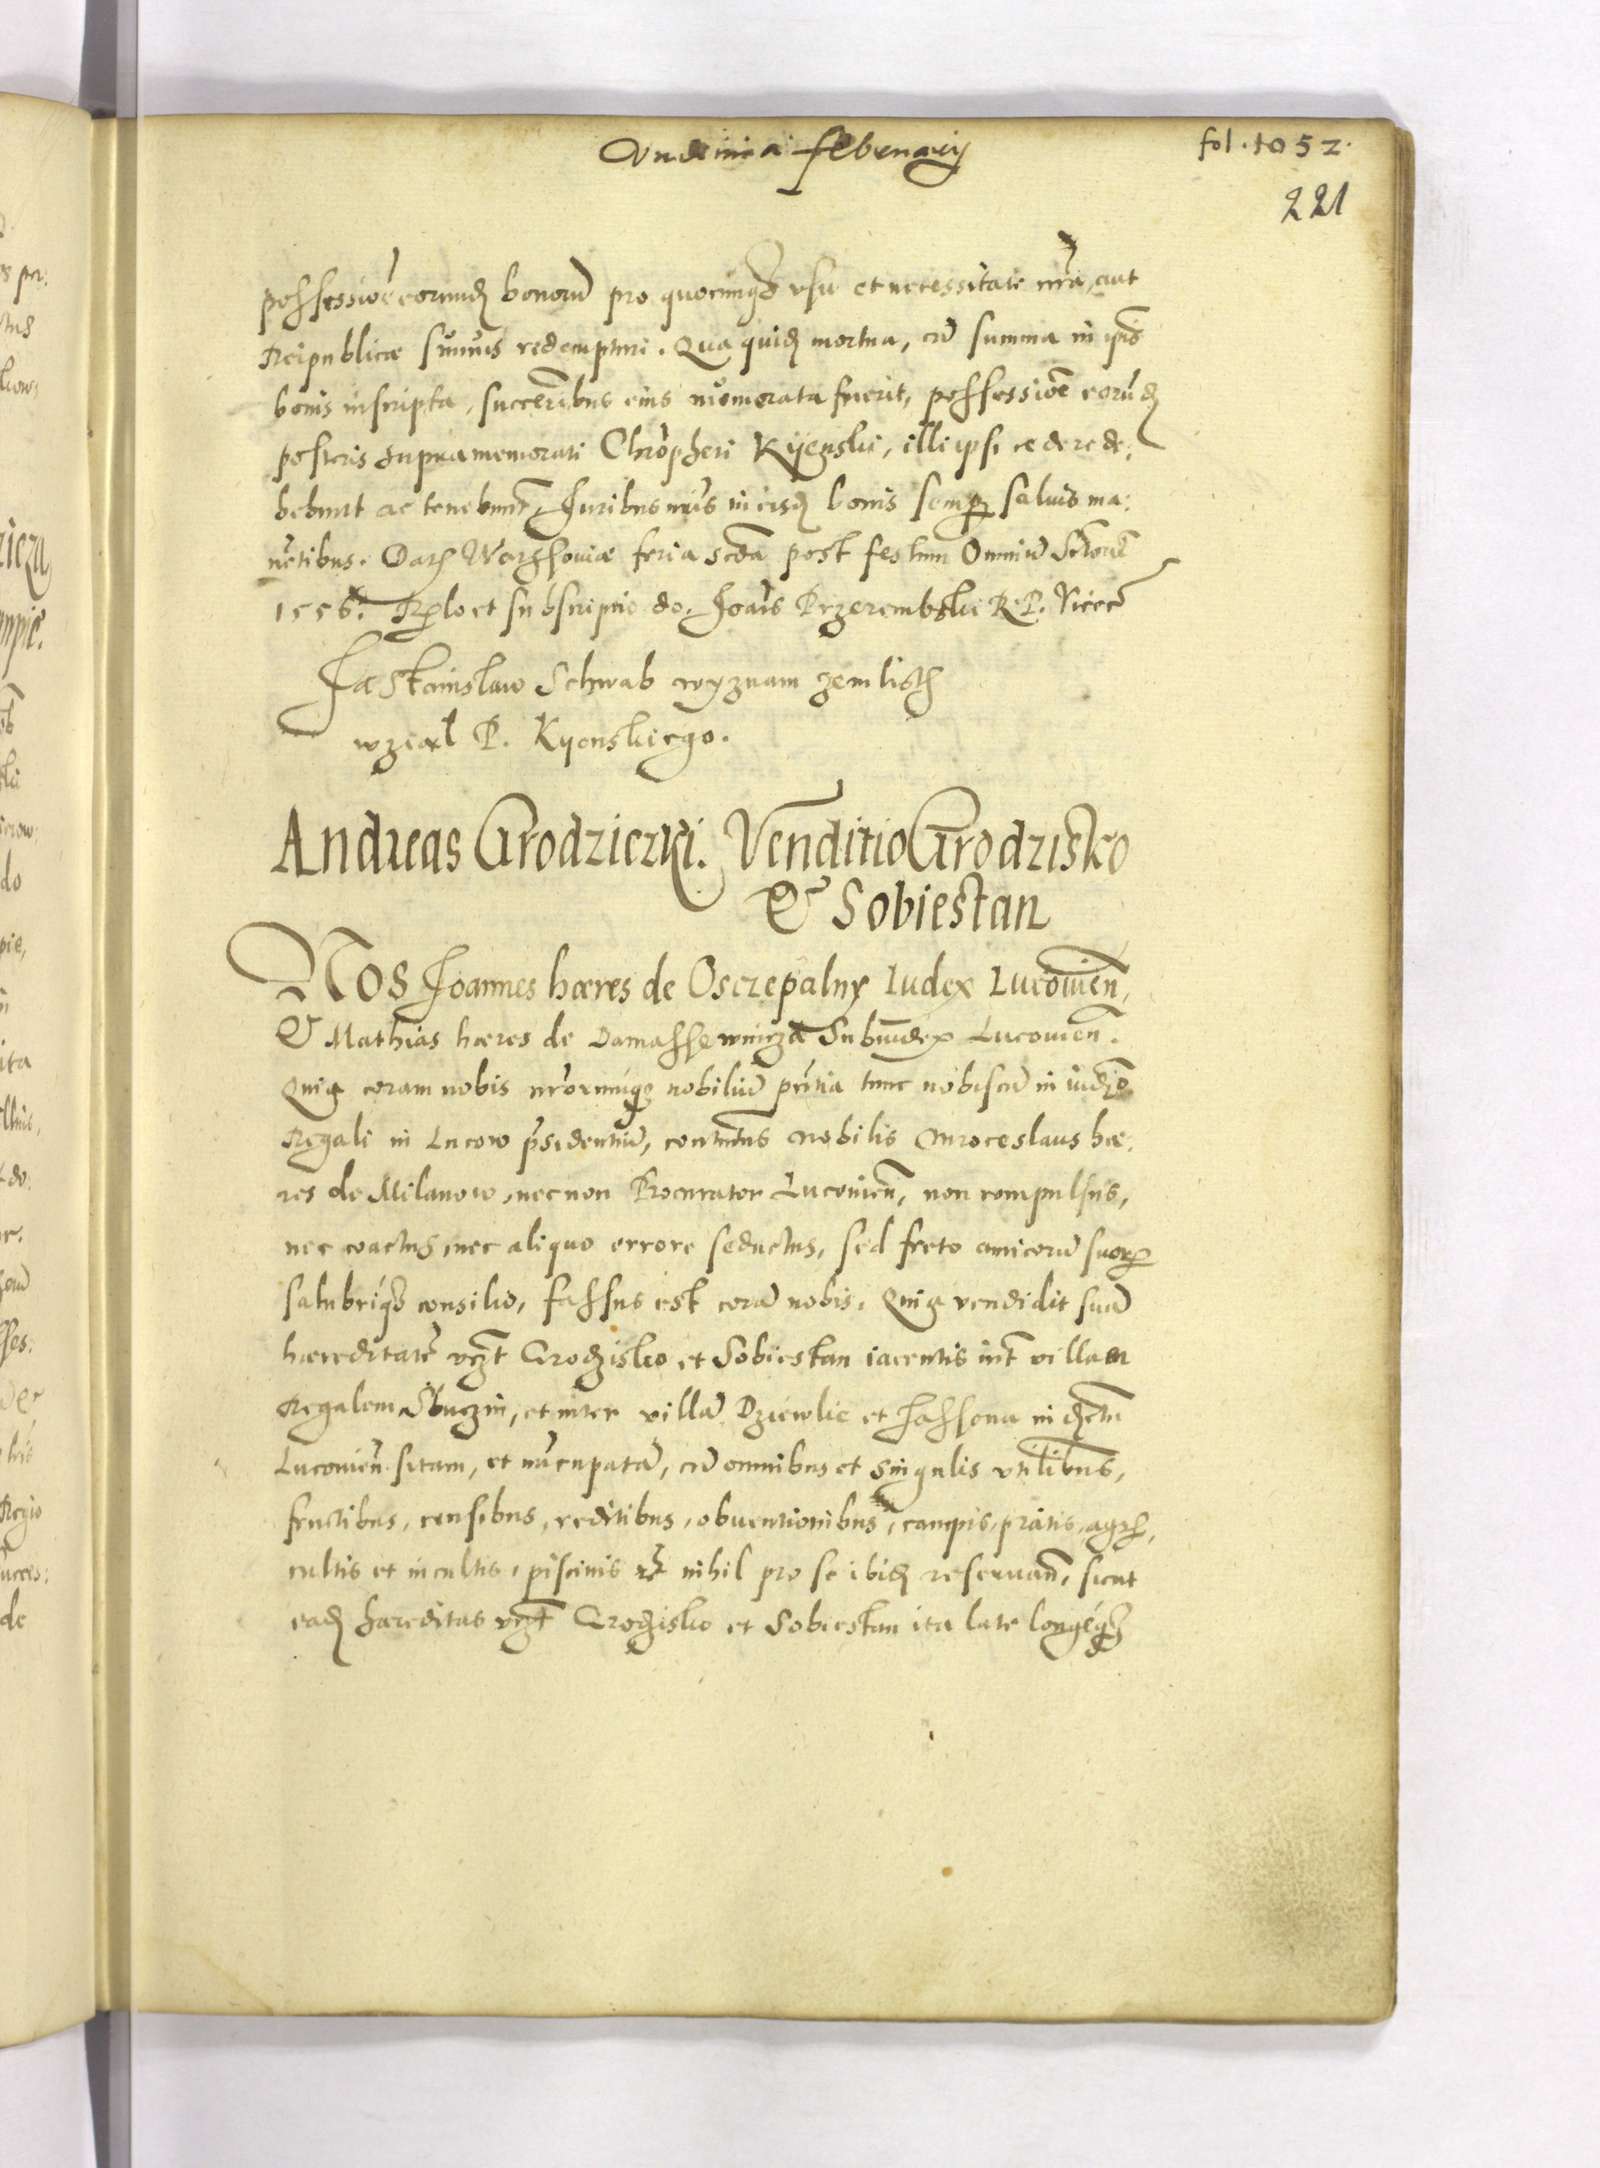 Undecima februarij
fol. 1052.
221
possessioē eorundē bonorū pro quocunqȝ vsu et necessitate nrā, aut
Reipublicæ sumus redempturi. Qua quidē mortua, cū summa in ipīs
bonis inscripta, succeribus eius numerata fuerit, possessioē eorūdē
posteris supramemorati Chrōpheri Kijenski, illi ipsi cedere de:
bebunt ac tenebunt, Juribus nrīs in eisdē bonis semper saluis ma:
nētibus. Datę Warssoviæ feria scda post festum Omniū Sctorū
1556. et subscriptio do. Joāis Przerembski R. P. Vicecā
Ja Stanislaw Schwab wyznam zem listh
wzial P. Kyenskiego.
Andreas Grodziczki. Venditio Grodzisko
& Sobiestan
NOS Joannes hæres de Osczepalny Iudex Lucovieñ,
& Mathias hæres de Domassewnicza Subiudex Lucovien.
Quia coram nobis nrorumqȝ nobiliū pñtia tunc nobiscū in iudō
Regali in Lucow pr̄sidentiū, nobilis Mroceslaus hæ:
res de Milanow, nec non Procurator Lucovieñ, non compulsus,
nec coactus, nec aliquo errore seductus, sed freto amicorū suorꝫ
salubriqȝ consilio, fassus est corā nobis. Quia vendidit suā
hæreditatē vczt Grodzisko et Sobiestan iacentis int villam
Regalem Sbuczin, et inter villā Dziewlie et Jassona in dctu
Lucovieñ sitam, et nūcupatā, cū omnibus et singulis vtilibus,
fructibus, censibus, reditibus, obuentionibus, campis, pratis, agrꝭ,
cultis et incultis, piscinis nihil pro se ibidē reseruañ, sicut
eadē hæreditas vczt Grodzisko et Sobiestan ita late longeqȝ